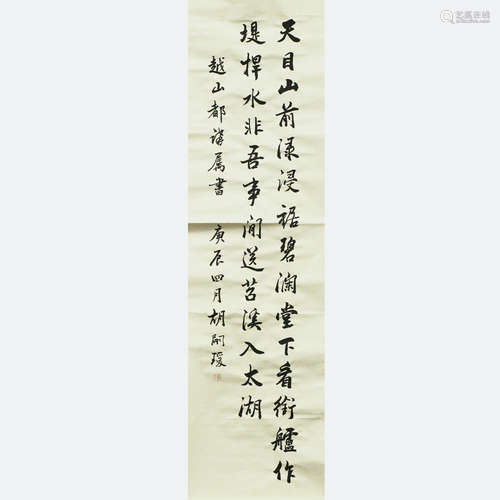 天目山前淥浸裾碧瀾堂下看銜艫作
堤捍水非吾事閒送苕溪入太湖
越山都講属書 庚辰四月胡嗣瑗